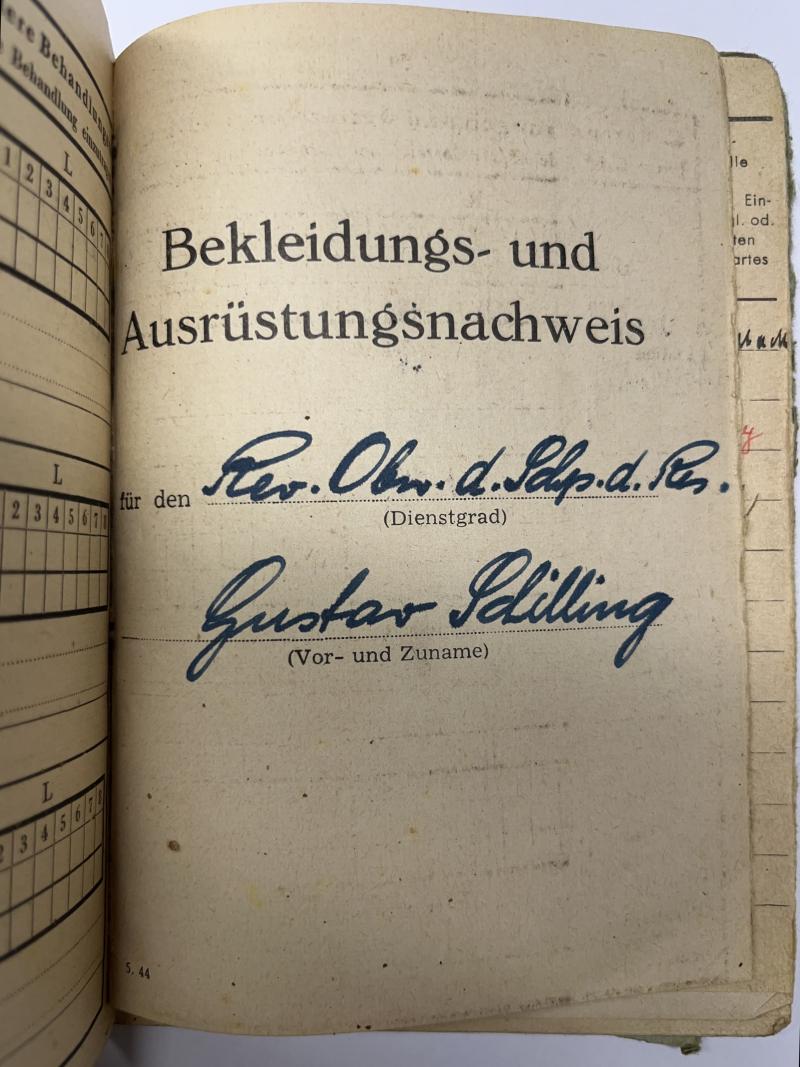 ere Behandlung
Behandlung einzutrag
L
1 2 3 4 5 6 7
L
2 3 4 5 6 7 8
L
2 3 4 5 6 7 8
Bekleidungs- und
Ausrüstungsnachweis
für den Rev. Obw. d. Schp. d. Res.
(Dienstgrad)
Gustav Schilling
(Vor- und Zuname)
5. 44
lle
Ein-
l. od.
ten
artes